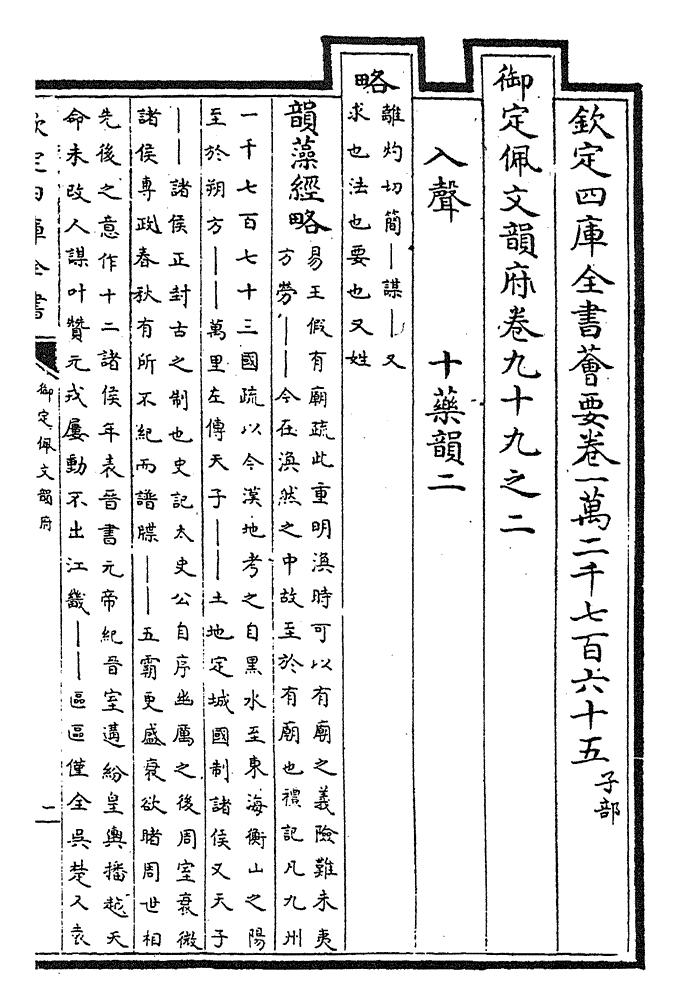 欽定四庫全書薈要卷一萬二千七百六十五 子部
御定佩文韻府卷九十九之二
入聲 十藥韻二
略離灼切簡｜謀｜又
求也法也要也又姓
韻藻經略易王假有廟疏此重明渙時可以有廟之義險難未夷
方勞｜｜今在渙然之中故至於有廟也禮記凡九州
一千七百七十三國疏以今漢地考之自黑水至東海衡山之陽
至於朔方｜｜萬里左傳天子｜｜土地定城國制諸侯又天子
｜｜諸侯正封古之制也史記太史公自序幽厲之後周室衰微
諸侯專政春秋有所不紀而譜牒｜｜五霸更盛衰欲睹周世相
先後之意作十二諸侯年表晉書元帝紀晉室遘紛皇輿播越天
命未改人謀叶贊元戎屢動不出江畿｜｜區區僅全吳楚又袁
欽定四庫全書
御定佩文韻府
二